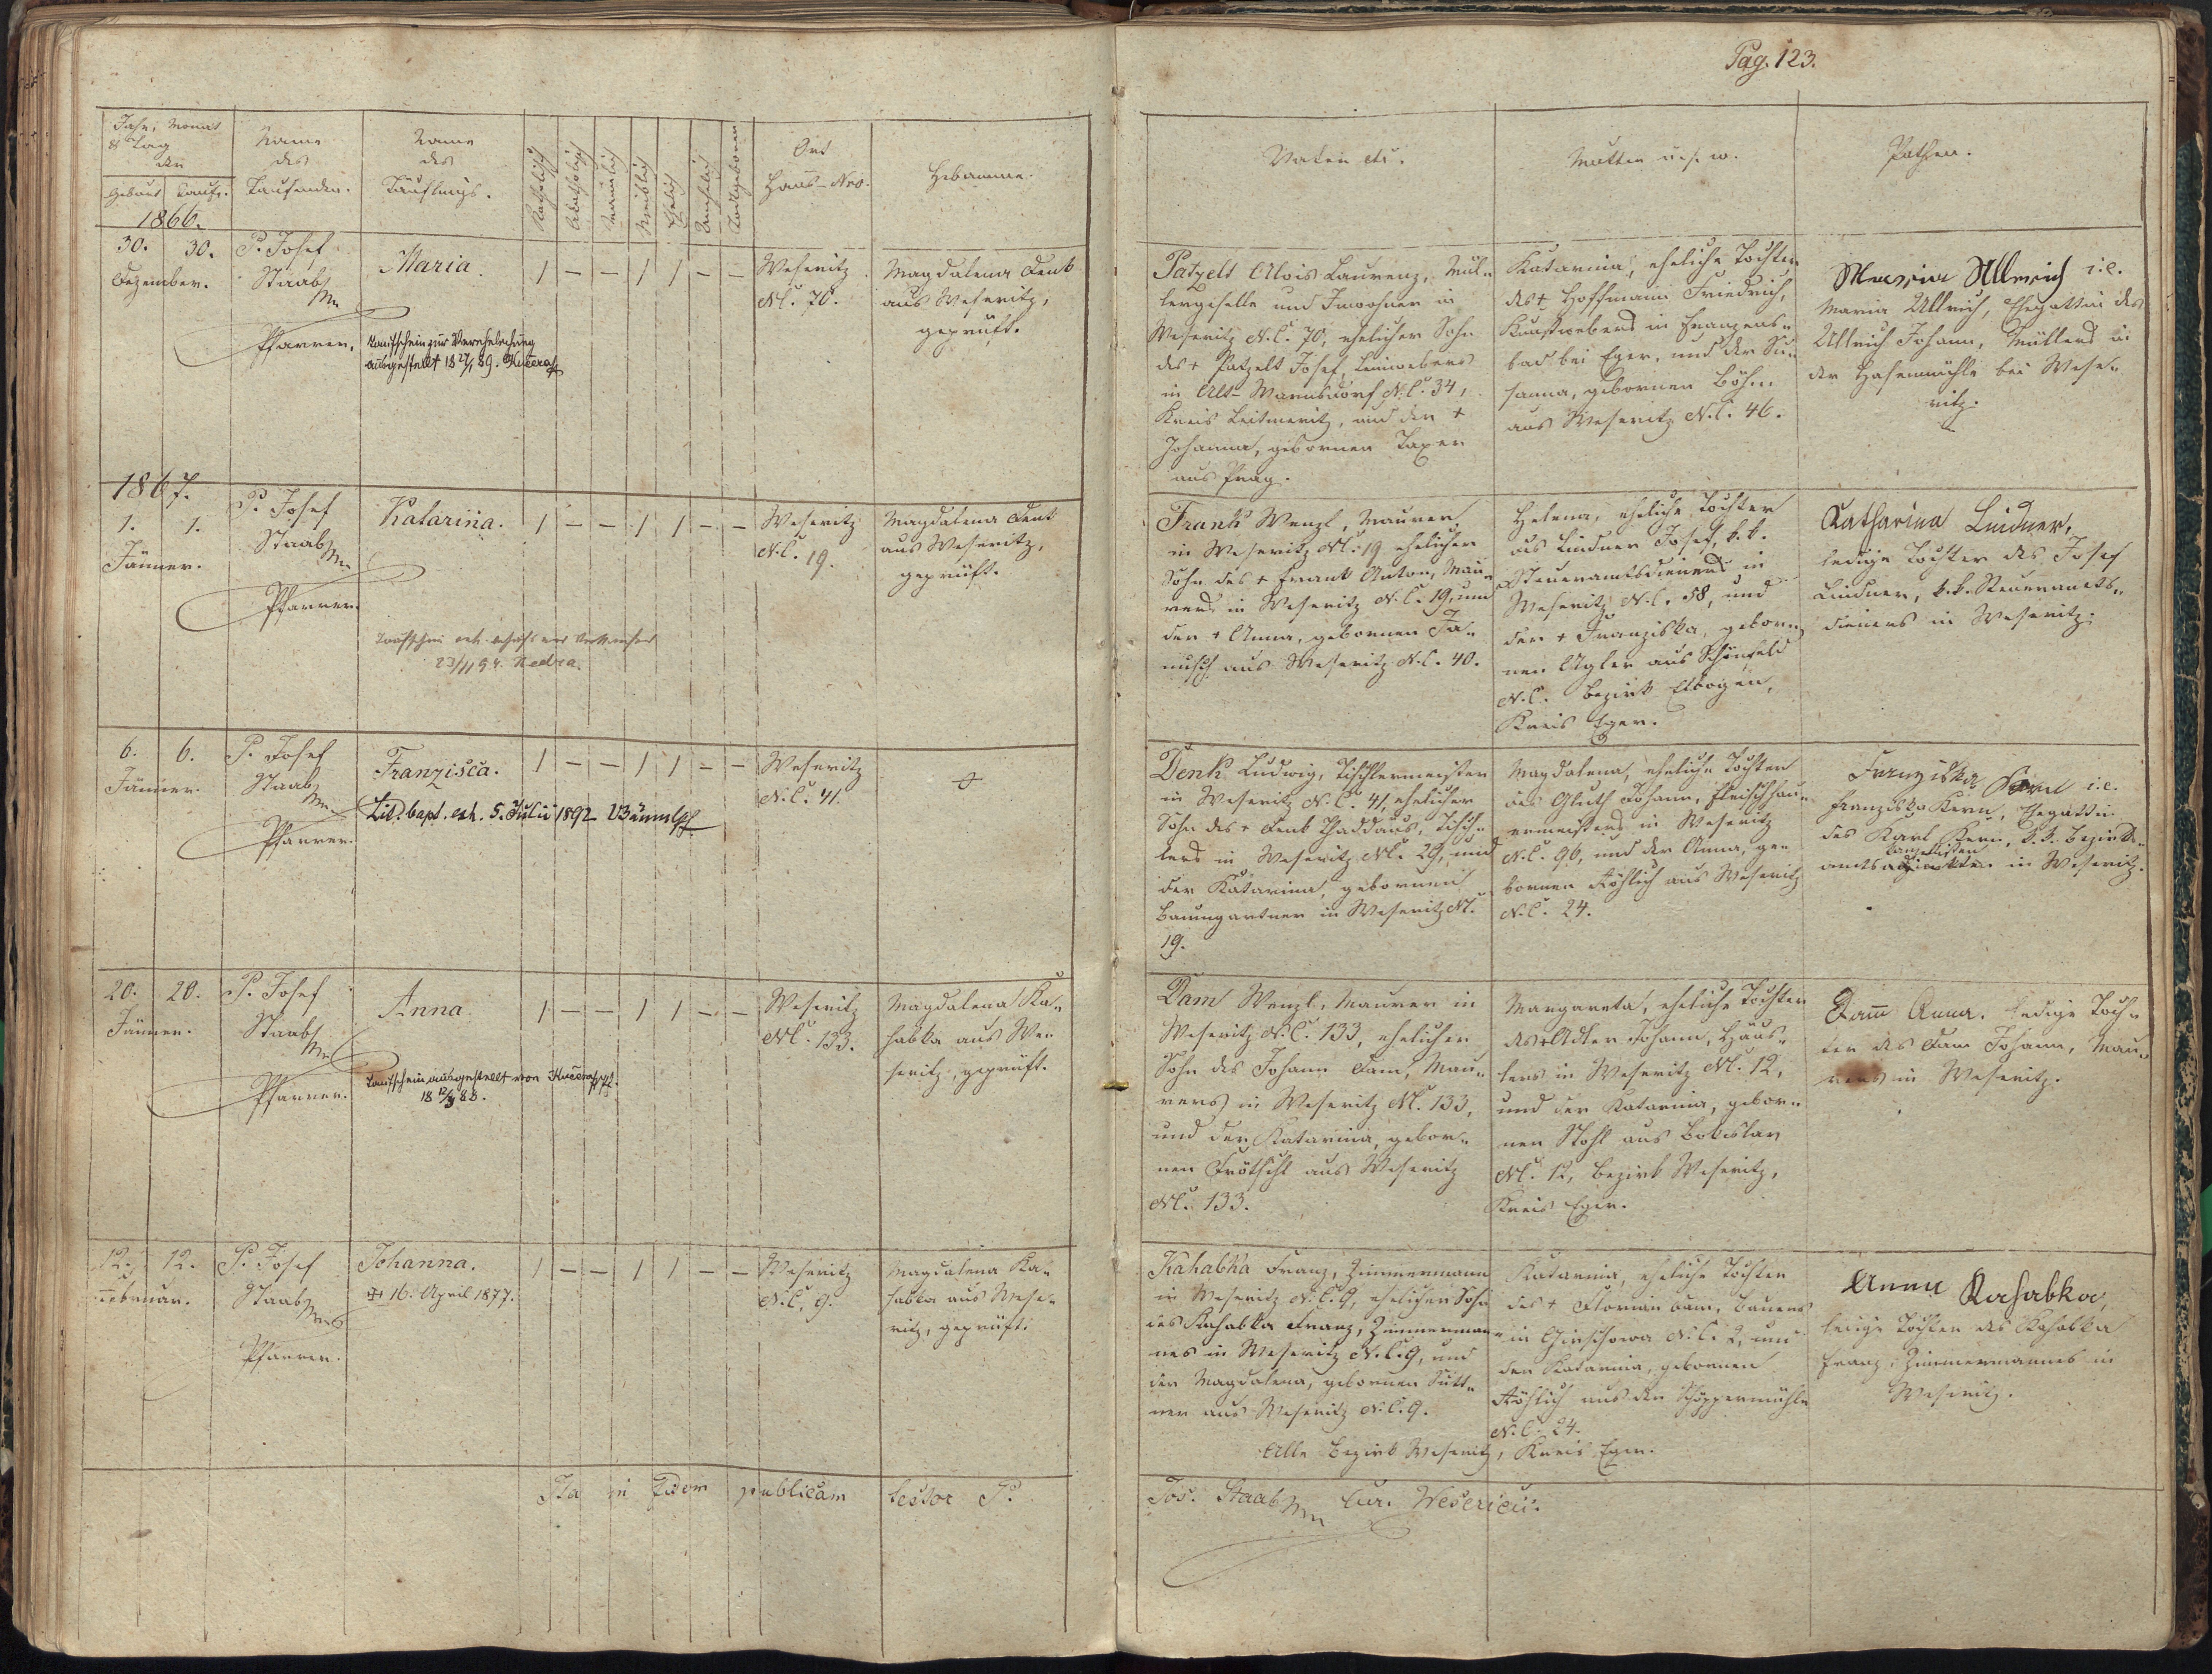 Pag. 123.
Jahr, Monat
& Tag
der
Geburt Taufe.
Name
des
Taufenden.
Name
des
Täuflings.
Katholisch
Akatholisch
Männlich
Weiblich
Ehelich
Unehelich
Todtgeboren
Ort
Haus-Nro.
Hebamme.
Vater etc.
Mutter u.s.w.
Pathen.
1866.
30. 30.
Dezember.
P. Josef
Staab
Pfarrer.
Maria.
Taufschein zur Verehelichung
ausgestellt 18 27/1 89. Kučera
1 – – 1 1 – –
Weseritz
N.C. 70.
Magdalena Denk
aus Weseritz,
geprüft.
Patzelt Alois Laurenz, Mül-
lergeselle und Inwohner in
Weseritz N.C. 70, ehelicher Sohn
des + Patzelt Josef, Leinwebers
in Alt-Warnsdorf N.C. 34,
Kreis Leitmeritz, und der +
Johanna, gebornen Taxer
aus Prag.
Katarina, eheliche Tochter
des + Hoffmann Friedrich,
Kunstwebers in Franzens-
bad bei Eger, und der Su-
sanna, gebornen Böhm
aus Weseritz N.C. 46.
Maria Ullrich i.e.
Maria Ullrich, Ehegattin des
Ullrich Johann, Müllers in
der Hasenmühle bei Wese-
ritz.
1867.
1. 1.
Jänner.
P. Josef
Staab
Pfarrer.
Katarina.
23/11 94. Nedra.
1 – – 1 1 – –
Weseritz
N.C. 19.
Magdalena Denk
aus Weseritz,
geprüft.
Frank Wenzl, Maurer
in Weseritz N.C. 19 ehelicher
Sohn des + Frank Anton, Mau-
rers in Weseritz N.C. 19, und
der + Anna, gebornen Ja-
nusch aus Weseritz N.C. 40.
Helena, eheliche Tochter
des Lindner Josef, k.k.
Steueramtsdieners in
Weseritz N.C. 58, und
der + Franziska, gebor-
nen Ugler aus Schönfeld
N.C. Bezirk Elbogen,
Kreis Eger.
Katharina Lindner,
ledige Tochter des Josef
Lindner, k.k. Steueramts-
dieners in Weseritz.
6. 6.
Jänner.
P. Josef
Staab
Pfarrer.
Franzisca.
Lit. bapt. ext. 5. Julii 1892
1 – – 1 1 – –
Weseritz
N.C. 41.
Denk Ludwig, Tischlermeister
in Weseritz N.C. 41, ehelicher
Sohn des + Denk Thaddäus, Tisch-
lers in Weseritz N.C. 29, und
der Katarina, gebornen
Baumgartner in Weseritz N.C.
19.
Magdalena, eheliche Tochter
des Gluth Johann, Fleischhau-
ermeisters in Weseritz
N.C. 96, und der Anna, ge-
bornen Fröhlich aus Weseritz
N.C. 24.
Franziska Kern i.e.
Franziska Kern, Ehegattin
des Karl Kern, k.k. Bezirks-
kanzellisten
amts in Weseritz.
20. 20.
Jänner.
P. Josef
Staab
Pfarrer.
Anna.
Taufschein ausgestellt von Kučera Pf.
18 12/9 88.
1 – – 1 1 – –
Weseritz
N.C. 133.
Magdalena Ka-
habka aus We-
seritz, geprüft.
Dam Wenzl, Maurer in
Weseritz N.C. 133, ehelicher
Sohn des Johann Dam, Mau-
rers in Weseritz N.C. 133,
und der Katarina, gebor-
nen Frötschl aus Weseritz
N.C. 133.
Margareta, eheliche Tochter
des + Adler Johann, Häus-
lers in Weseritz N.C. 12,
und der Katarina, gebor-
nen Stohl aus Bohuslav
N.C. 12, Bezirk Weseritz,
Kreis Eger.
Dam̅ Anna. Ledige Toch-
ter des Dam Johann, Mau-
rers in Weseritz.
12. 12.
Februar.
P. Josef
Staab
Pfarrer.
Johanna.
+ 16. April 1877.
1 – – 1 1 – –
Weseritz
N.C. 9.
Magdalena Ka-
habka aus Wese-
ritz, geprüft.
Kahabka Franz, Zimmermann
in Weseritz N.C. 9, ehelicher Sohn
des Kahabka Franz, Zimmerman-
nes in Weseritz N.C. 9, und
der Magdalena, gebornen Sutt-
ner aus Weseritz N.C. 9.
Katarina, eheliche Tochter
des + Florian Bam, Bauers
in Girschowa N.C. 2, und
der Katarina, gebornen
Fröhlich aus der Schöppermühle
N.C. 24.
Alle Bezirk Weseritz, Kreis Eger.
Anna Kahabka,
ledige Tochter des Kahabka
Franz, Zimmermannes in
Weseritz.
Ita in fidem publicam testor P.
Jos. Staab Cur. Wesericii.